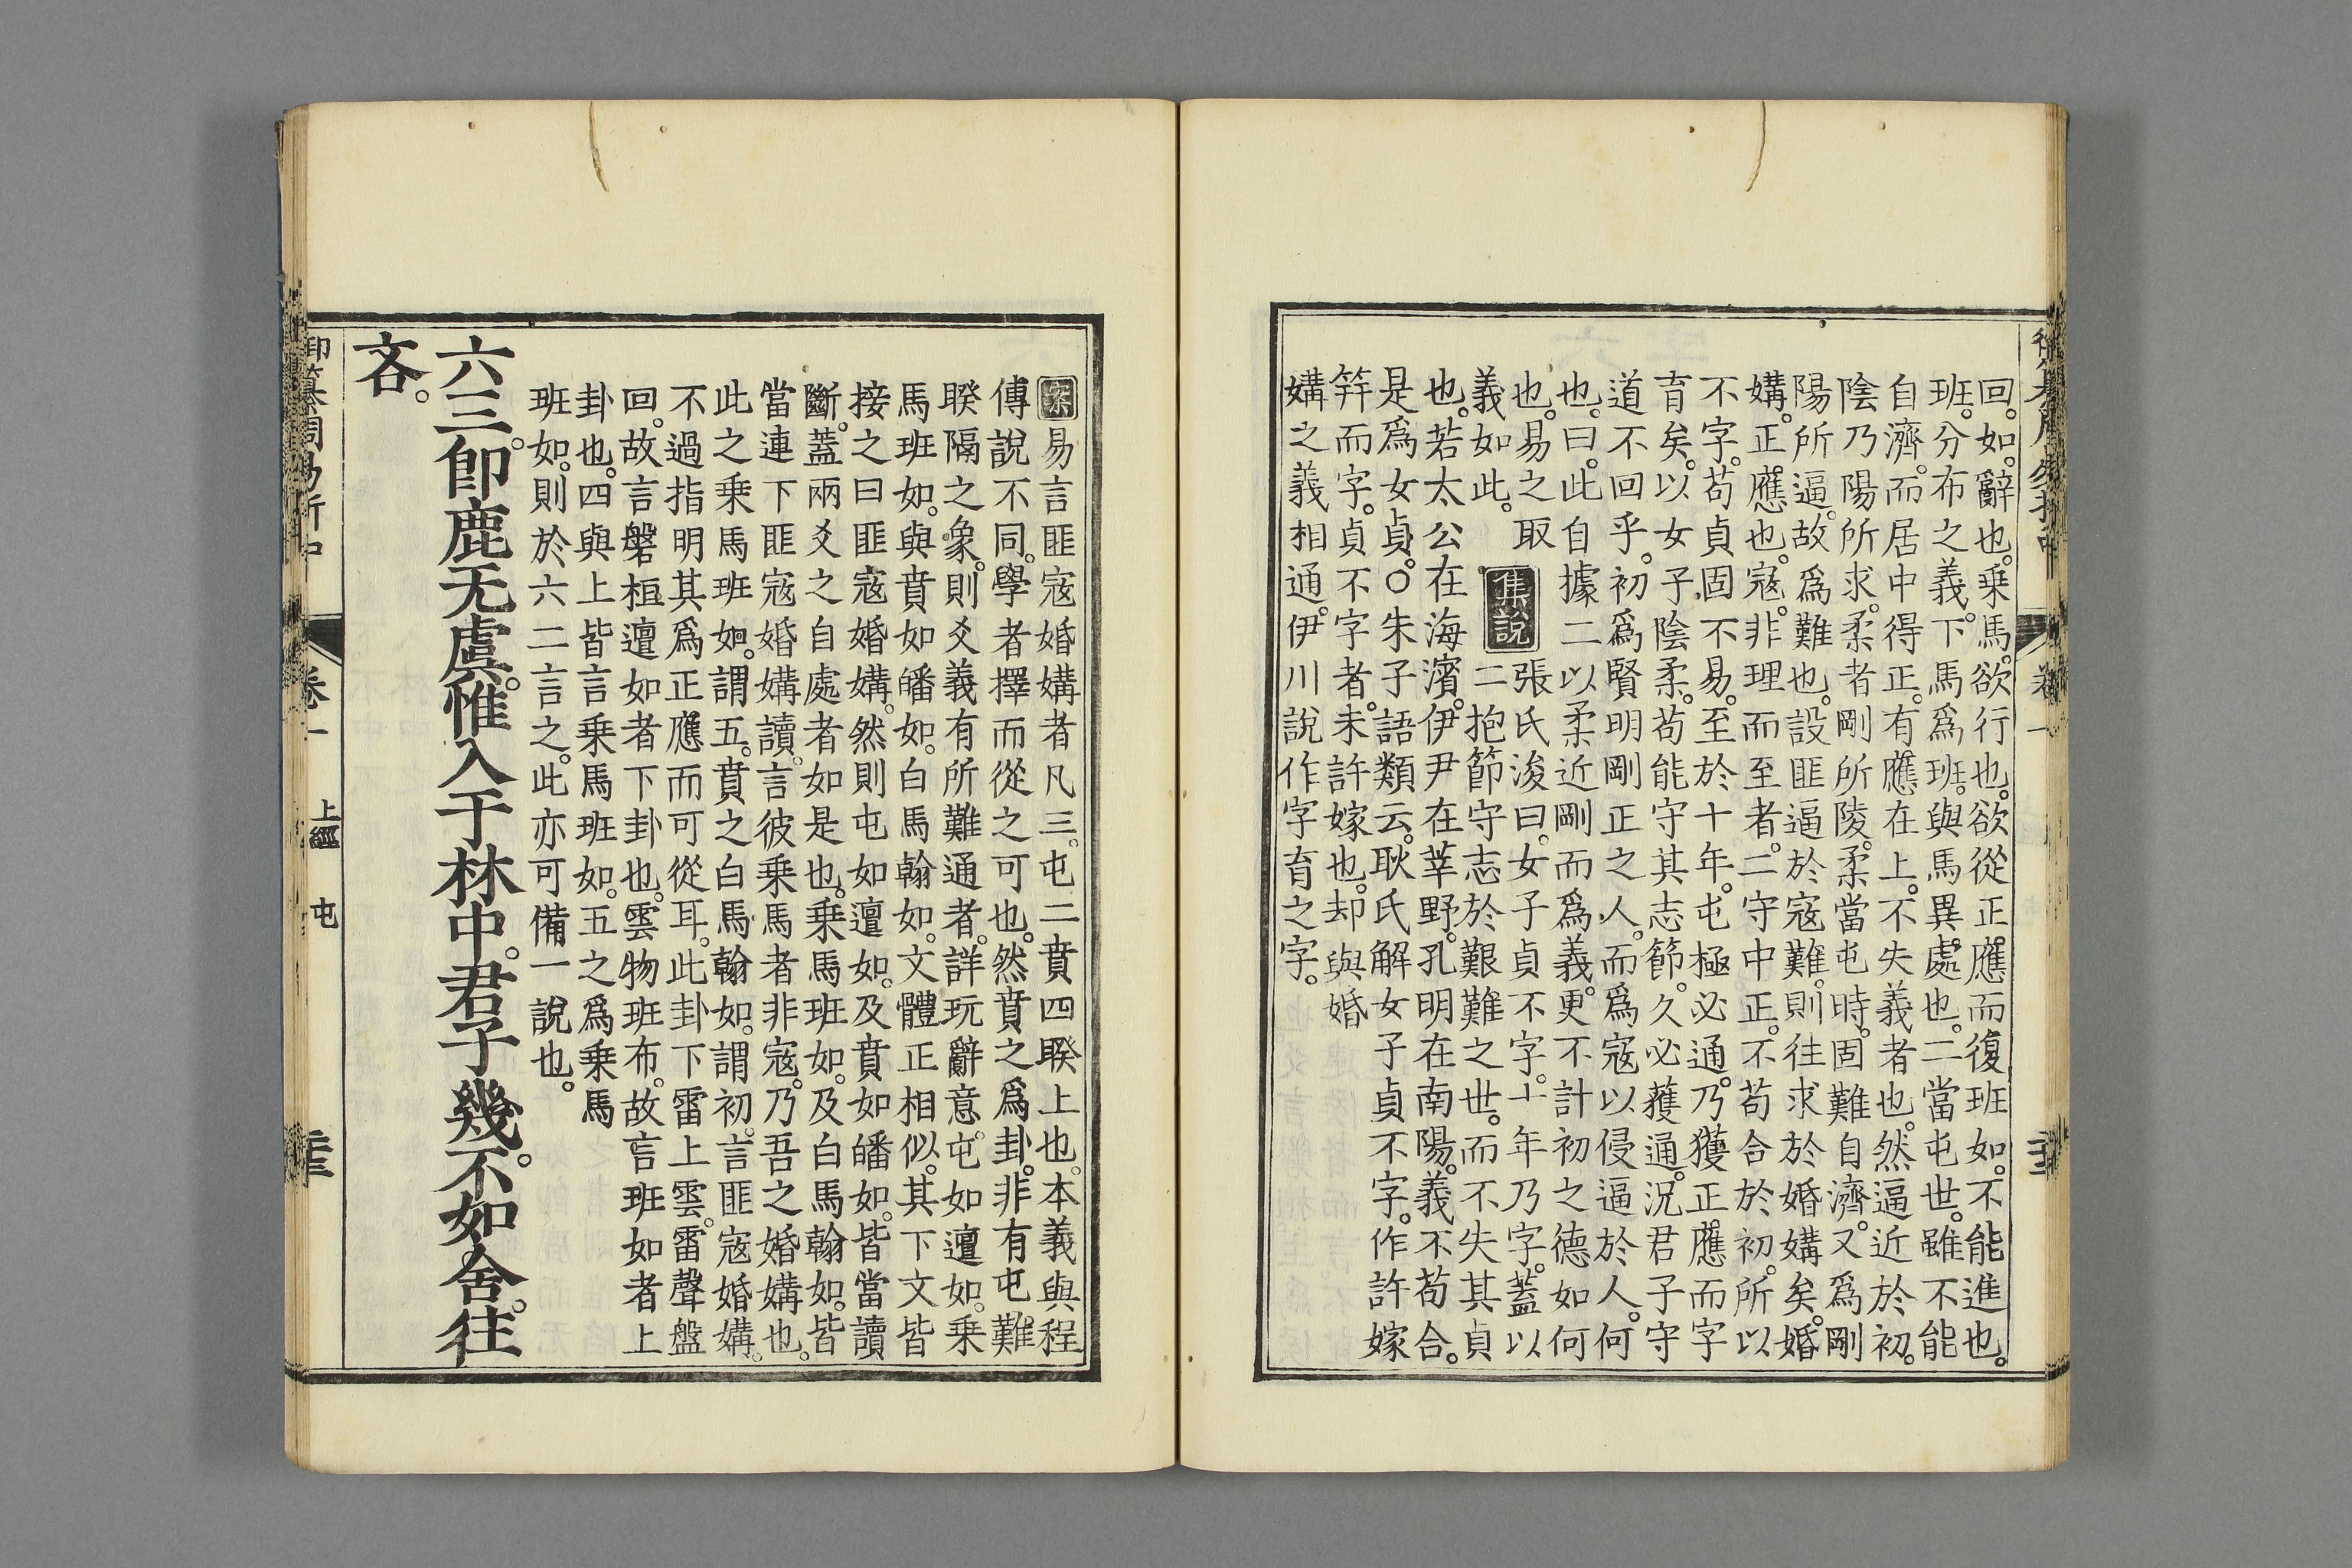 回。如。辭也。乘馬。欲行也。欲從正應而復班如。不能進也。
班。分布之義。下馬爲班。與馬異處也。二當屯世。雖不能
自濟。而居中得正。有應在上。不失義者也。然逼近於初。
陰乃陽所求。柔者剛所陵。柔當屯時。固難自濟。又爲剛
陽所逼。故爲難也。設匪逼於寇難。則往求於婚媾矣。婚
媾。正應也。寇。非理而至者。二守中正。不苟合於初。所以
不字。苟貞固不易。至於十年。屯極必通。乃獲正應而字
育矣。以女子陰柔。苟能守其志節。久必獲通。況君子守
道不回乎。初爲賢明剛正之人。而爲寇以侵逼於人。何
也。曰。此自據二以柔近剛而爲義。更不計初之德如何
也。易之取
義如此。
集說
張氏浚曰。女子貞不字。十年乃字。蓋以
二抱節守志於艱難之世。而不失其貞
也。若太公在海濱。伊尹在莘野。孔明在南陽。義不苟合。
是爲女貞。○朱子語類云。耿氏解女子貞不字。作許嫁
笄而字。貞不字者。未許嫁也。却與婚
媾之義相通。伊川說作字育之字。
案 易言匪寇婚媾者凡三。屯二賁四睽上也。本義與程
傳說不同。學者擇而從之可也。然賁之爲卦。非有屯難
睽隔之象。則爻義有所難通者。詳玩辭意。屯如邅如。乘
馬班如。與賁如皤如。白馬翰如。文體正相似。其下文皆
接之曰匪寇婚媾。然則屯如邅如。及賁如皤如。皆當讀
斷。蓋兩爻之自處者如是也。乘馬班如。及白馬翰如。皆
當連下匪寇婚媾讀。言彼乘馬者非寇。乃吾之婚媾也。
此之乘馬班如。謂五。賁之白馬翰如。謂初。言匪寇婚媾。
不過指明其爲正應而可從耳。此卦下雷上雲。雷聲盤
回。故言磐桓邅如者下卦也。雲物班布。故言班如者上
卦也。四與上皆言乘馬班如。五之爲乘馬
班如。則於六二言之。此亦可備一說也。
六三。卽鹿无虞。惟入于林中。君子幾。不如舍。往
吝。
御纂周易折中 卷一 上經 屯